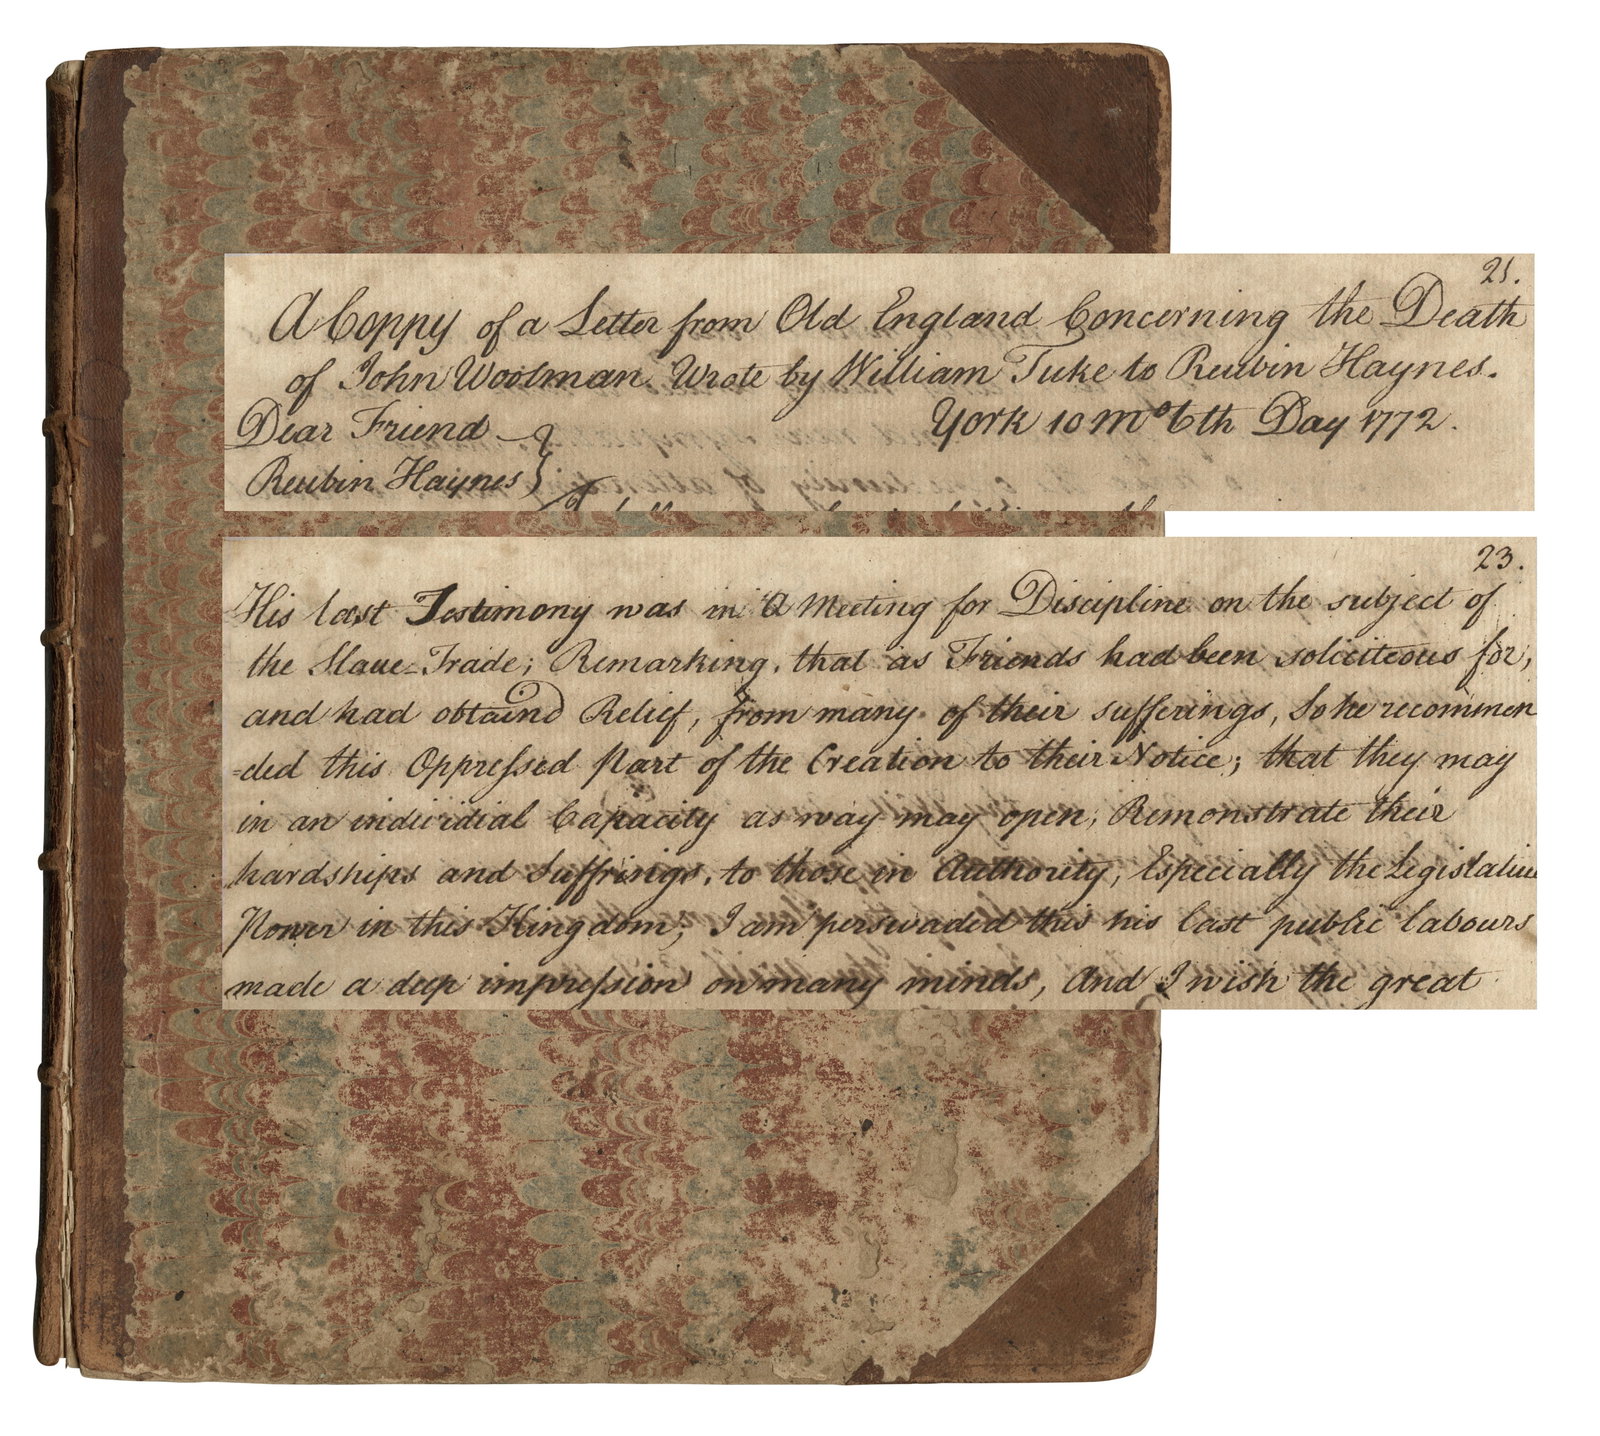 21.
A Coppy of a Letter from Old England Concerning the Death
of John Woolman. Wrote by William Tuke to Reubin Haynes.
Dear Friend York 10 Mo 6th Day 1772.
Reubin Haynes
23.
His last Testimony was in A Meeting for Discipline on the subject of
the Slave-Trade; Remarking, that as Friends had been soliciteous for,
and had obtaind Relief, from many of their sufferings, So he recommen
=ded this Oppressed Part of the Creation to their Notice; that they may
in an individial Capacity as way may open, Remonstrate their
hardships and Suffrings, to those in Authority, Especially the Legislative
Power in this Kingdom; I am perswaded this his last public labours
made a deep impression on many minds, And I wish the great